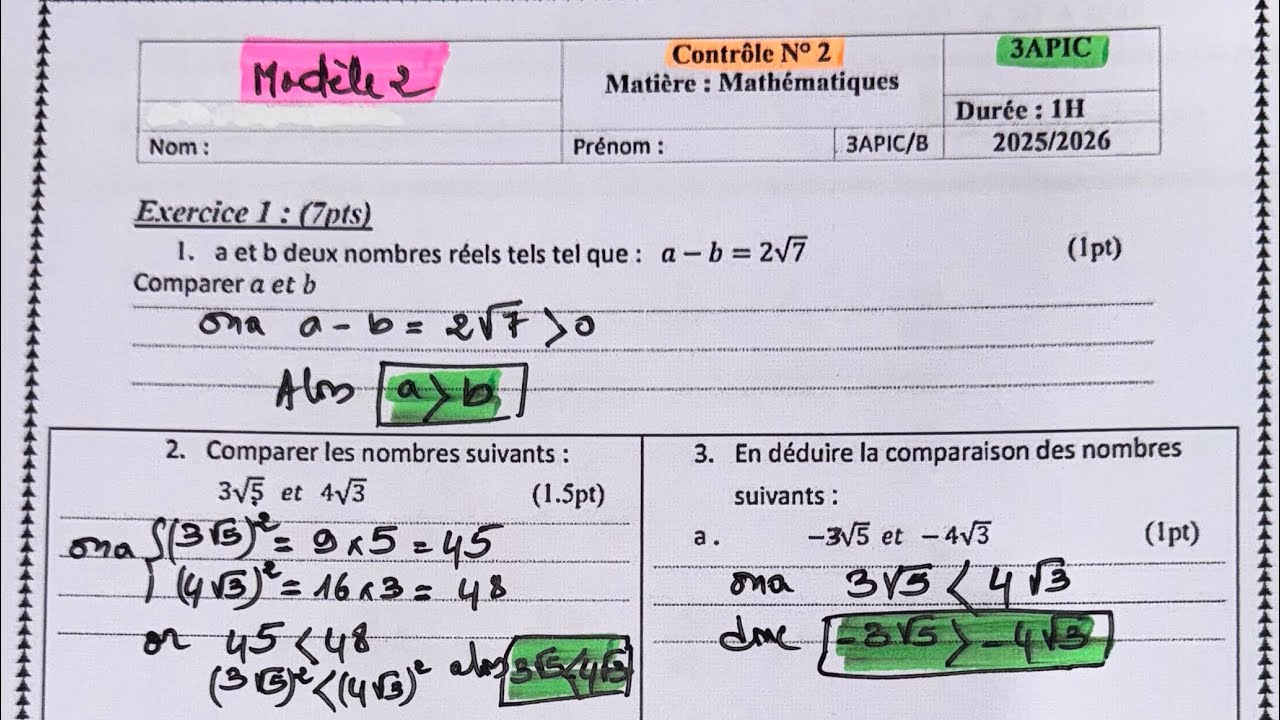 Modèle 2
Contrôle N° 2
Matière : Mathématiques
3APIC
Durée : 1H
Nom :
Prénom :
3APIC/B
2025/2026
Exercice 1 : (7pts)
1. a et b deux nombres réels tels tel que : a − b = 2√7 (1pt)
Comparer a et b
ona a − b = 2√7 > 0
Alors a > b
2. Comparer les nombres suivants :
3√5 et 4√3 (1.5pt)
ona { (3√5)² = 9 × 5 = 45
(4√3)² = 16 × 3 = 48
or 45 < 48
(3√5)² < (4√3)² alors 3√5 < 4√3
3. En déduire la comparaison des nombres
suivants :
a. −3√5 et − 4√3 (1pt)
ona 3√5 < 4√3
donc −3√5 > −4√3